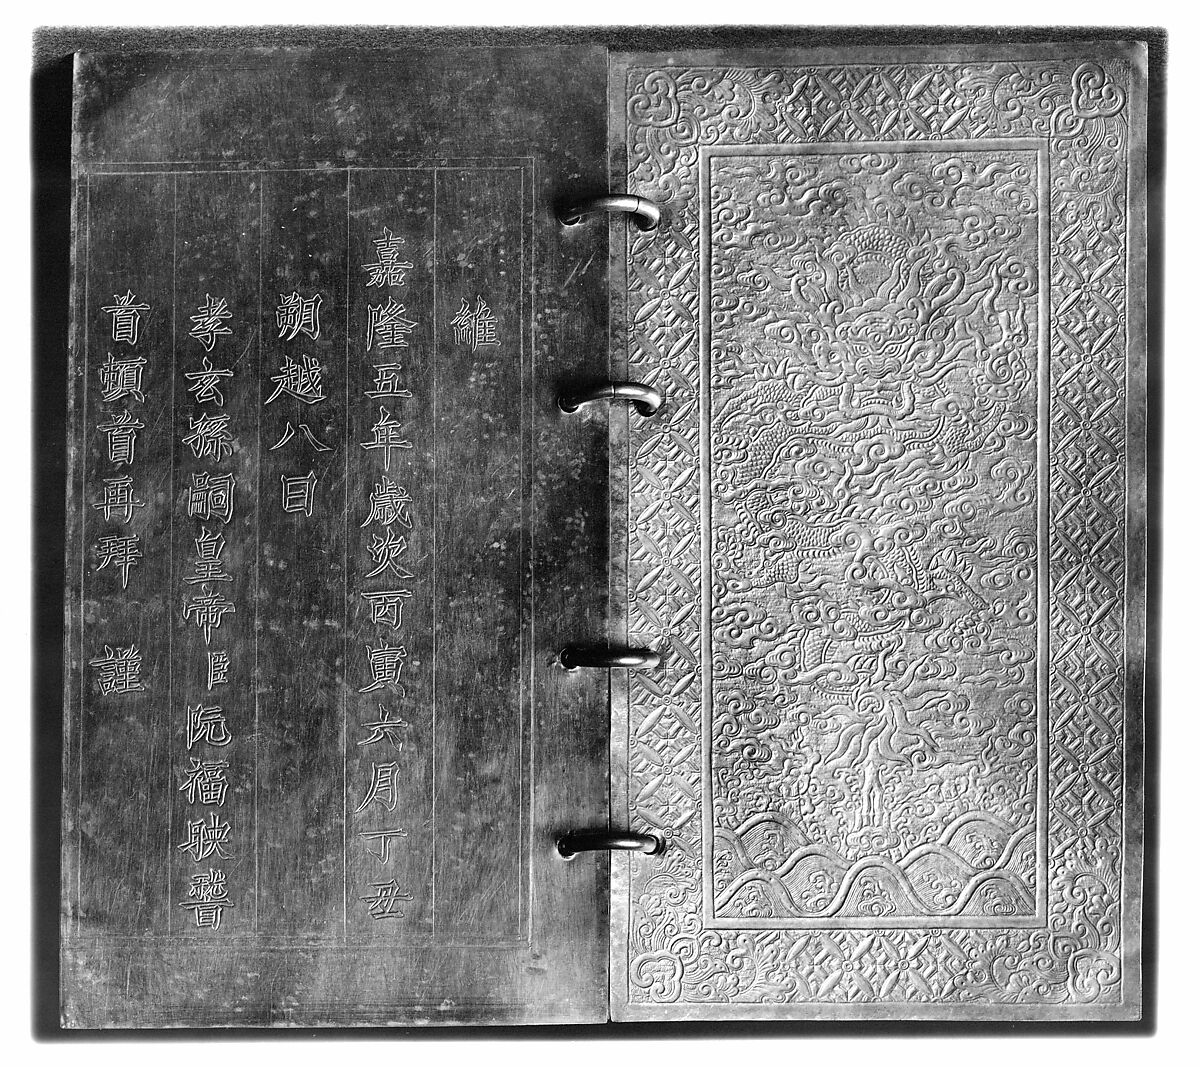 維
嘉隆五年歲次丙寅六月丁丑
朔越八日
孝玄孫嗣皇帝臣阮福映稽
首頓首再拜 謹